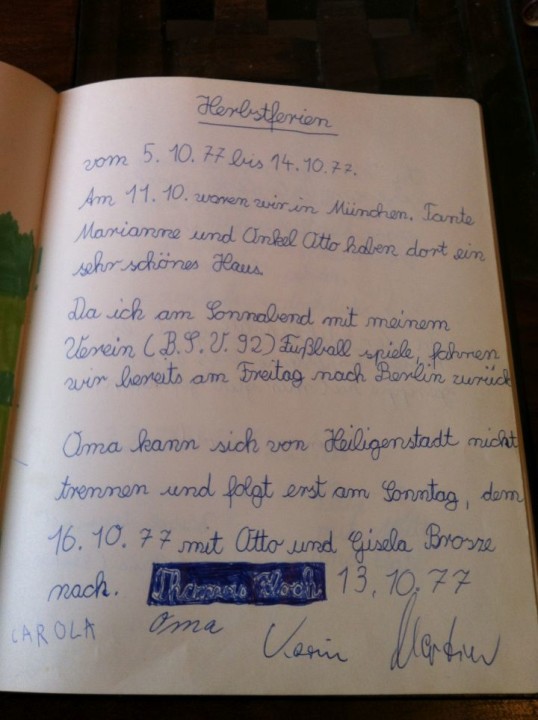 Herbstferien
vom 5.10.77 bis 14.10.77.
Am 11.10. waren wir in München. Tante
Marianne und Onkel Otto haben dort ein
sehr schönes Haus.
Da ich am Sonnabend mit meinem
Verein (B.S.V. 92) Fußball spiele, fahren
wir bereits am Freitag nach Berlin zurück
Oma kann sich von Heiligenstadt nicht
trennen und folgt erst am Sonntag, dem
16.10.77 mit Otto und Gisela
nach. Thomas Koch 13.10.77
CAROLA Oma